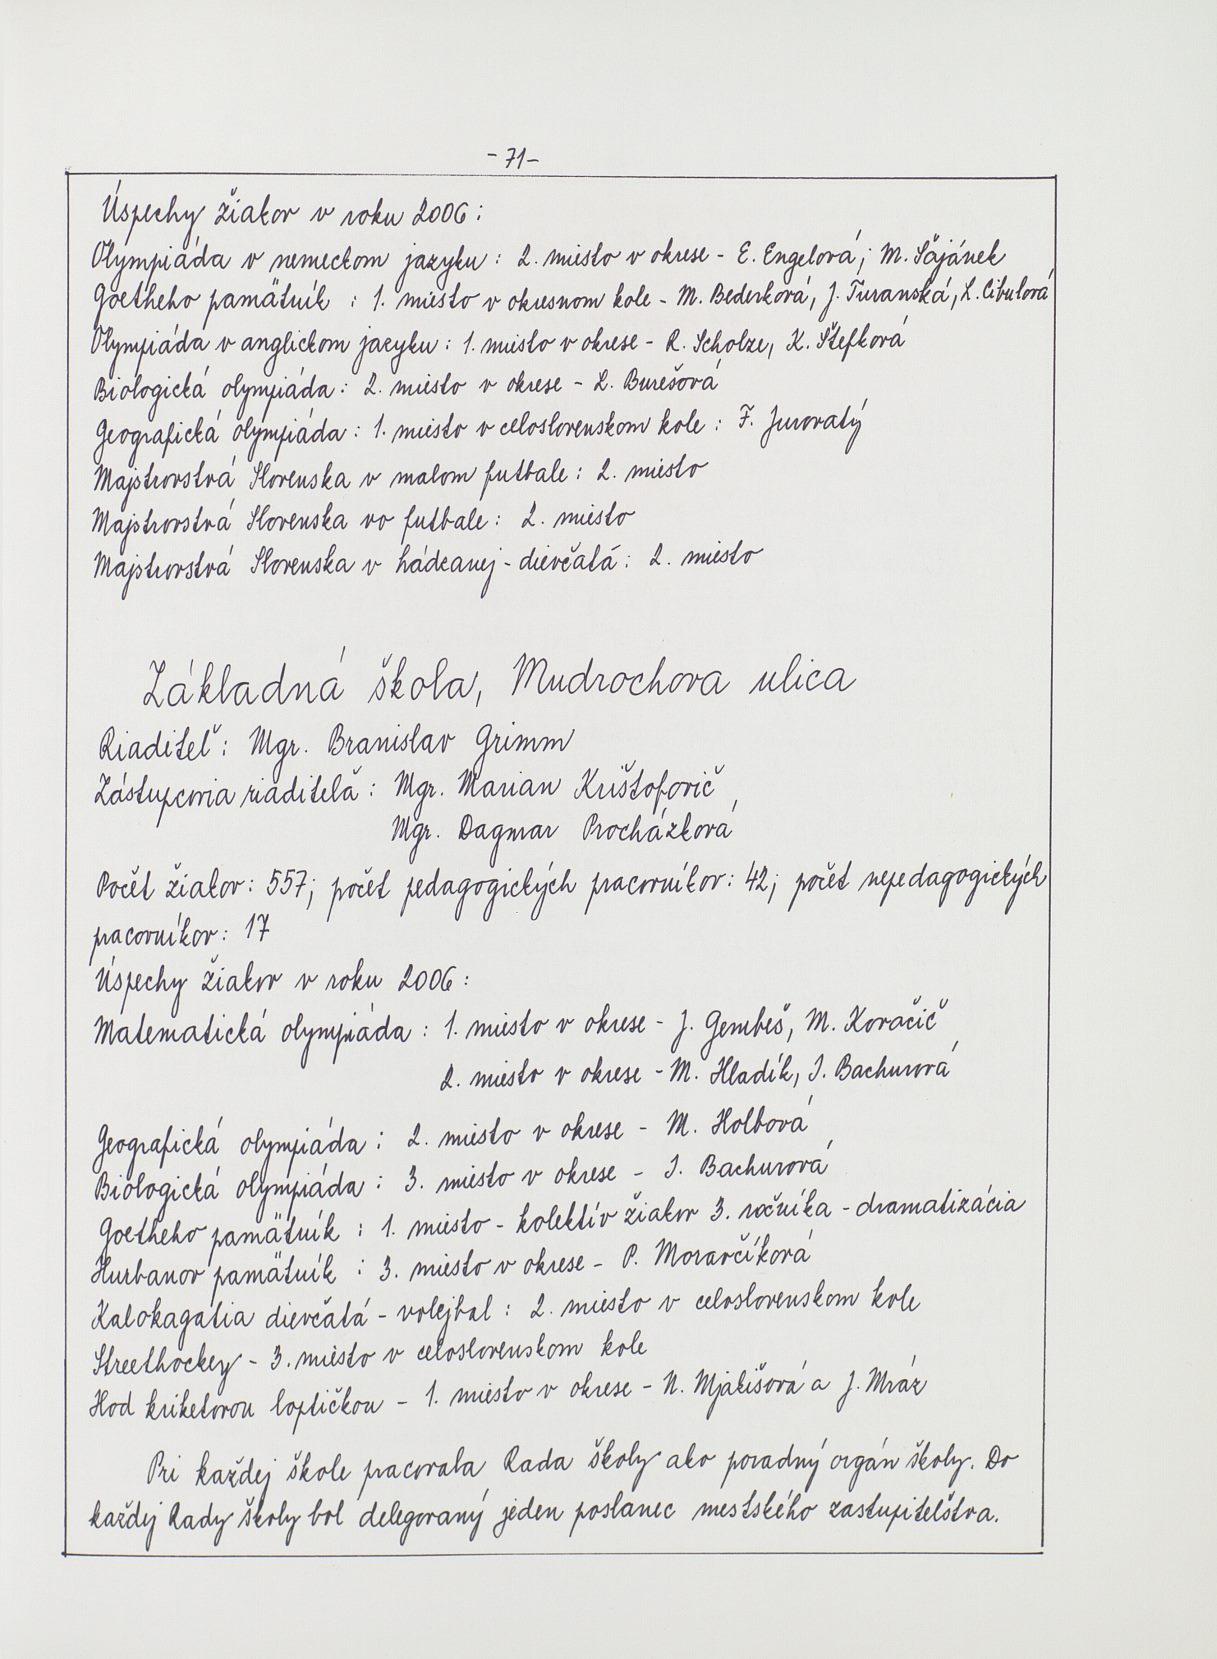 - 71 -
Úspechy žiakov v roku 2006:
Olympiáda v nemeckom jazyku: 2. miesto v okrese - E. Engelová; M. Šajánek
Goetheho pamätník : 1. miesto v okresnom kole - M. Bederková, J. Turanská, L. Cibulová
Olympiáda v anglickom jazyku: 1. miesto v okrese - R. Scholze, K. Štefková
Biologická olympiáda: 2. miesto v okrese - L. Burešová
Geografická olympiáda: 1. miesto v celoslovenskom kole: F. Jurovatý
Majstrovstvá Slovenska v malom futbale: 2. miesto
Majstrovstvá Slovenska vo futbale: 2. miesto
Majstrovstvá Slovenska v hádzanej - dievčatá: 2. miesto
Základná škola, Mudrochova ulica
Riaditeľ: Mgr. Branislav Grimm
Zástupcovia riaditeľa: Mgr. Marian Krištofovič
Mgr. Dagmar Procházková
Počet žiakov: 557; počet pedagogických pracovníkov: 42; počet nepedagogických
pracovníkov: 17
Úspechy žiakov v roku 2006:
Matematická olympiáda: 1. miesto v okrese - J. Gembeš, M. Kovačič
2. miesto v okrese - M. Hladík, I. Bachurová
Geografická olympiáda: 2. miesto v okrese - M. Holbová
Biologická olympiáda: 3. miesto v okrese - I. Bachurová
Goetheho pamätník : 1. miesto - kolektív žiakov 3. ročníka - dramatizácia
Hurbanov pamätník : 3. miesto v okrese - P. Moravčíková
Kalokagatia dievčatá - volejbal: 2. miesto v celoslovenskom kole
Streethockey - 3. miesto v celoslovenskom kole
Hod kriketovou loptičkou - 1. miesto v okrese - N. Mjakišová a J. Mráz
Pri každej škole pracovala Rada školy ako poradný orgán školy. Do
každej Rady školy bol delegovaný jeden poslanec mestského zastupiteľstva.